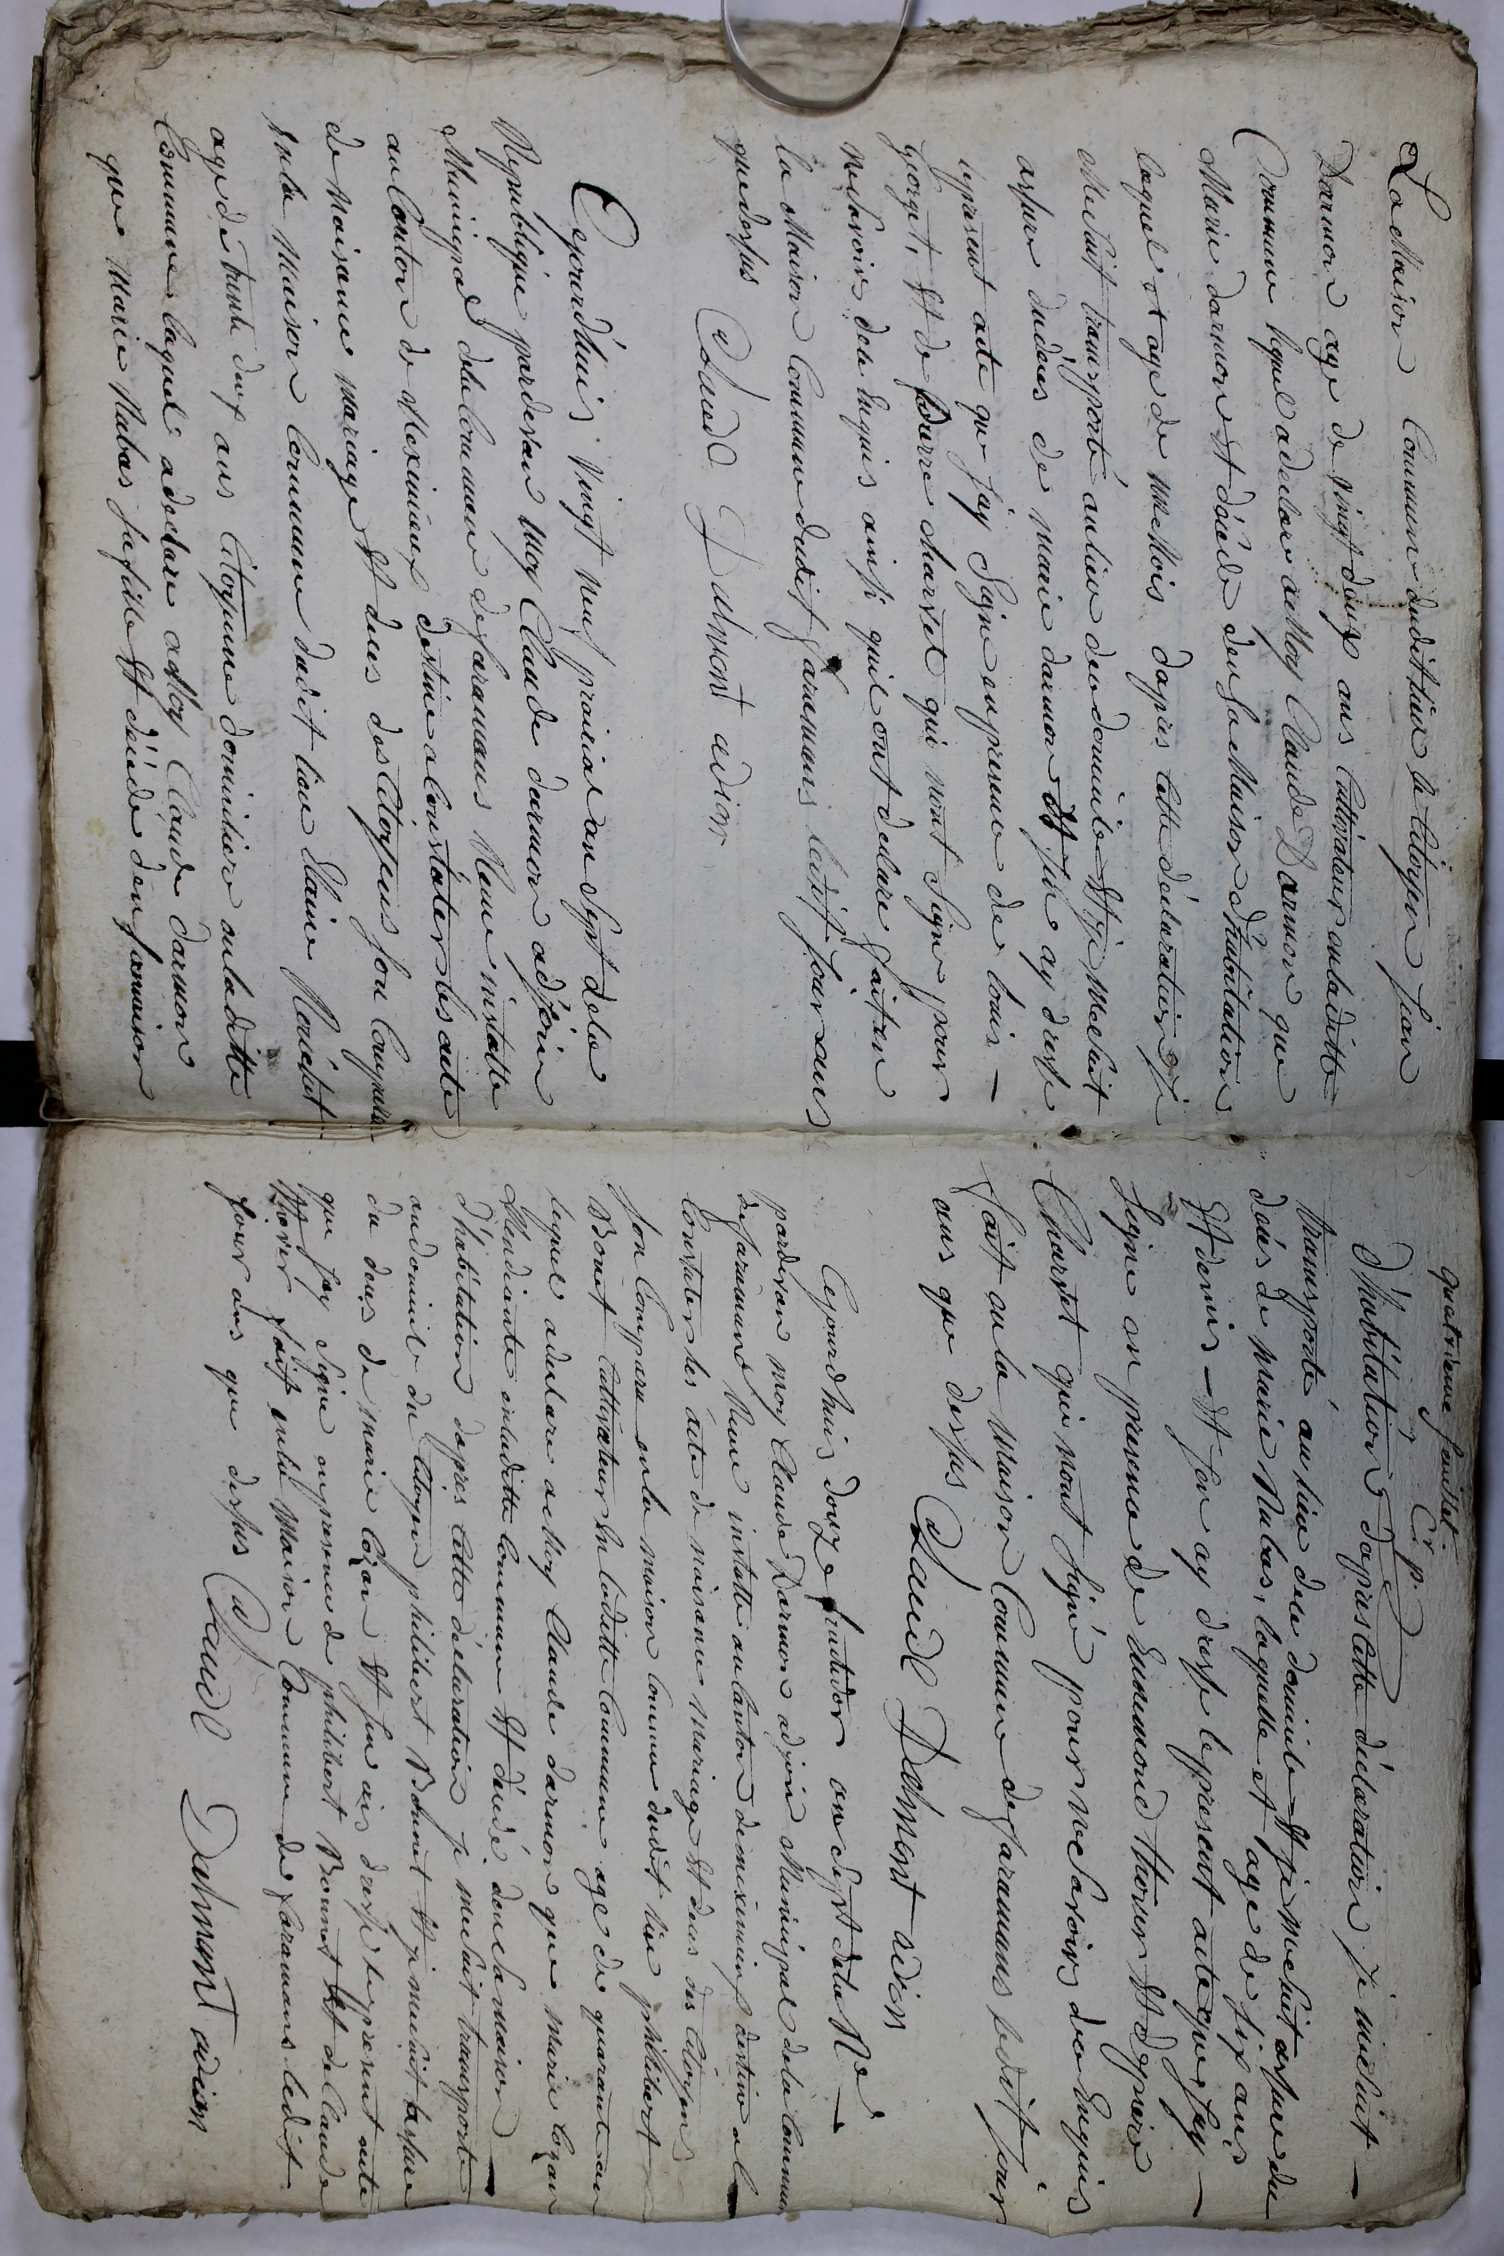 La Maison Commune dudit lieu le Citoyen jean
Darmon age de vingt deux ans Cultivateur en laditte
Commune lequel a declare a Moy Claude Darmon que
Marie darmon et décédé den sa Maison d'habitation
laquel et age de Mois dapres cette déclaration je
Me suit transporté au lieu deu domicile et je Me suit
assure dudées de marie darmon et jen ay dresé
le present acte que jay Signe en presence de louis
george, et de pierre charvet qui nont Signe pour
ne Savoire deu Enquis ainsi quil ont declare fait en
la Maison Commune dudit faramans ledit jour ans
que dessus Claude Dalmont adion
Cejourd'huis Vingt neuf prairial an Sept dela
République pardevan Moy Claude darmon adjoin
Municipal dela Commune defaramans Neme instalte
au Canton de Meximieux destine a Constater les acte
de Naisance mariage et deces des Citoyens Son Comparu
en la Maison Commune dudit lieu
age de trente deux ans Citoyenne domiciliere en laditte
Commune laquel a declare a Moy Claude darmon
que Marie Nabas sa fille et décédé den sa maison
quatrieme feuillet
C. p.
D'habitation dapres cette déclaration je me suit
transporté au lieu deu domicile et je me suit assure du
deces de marie Nabas, laquelle et age de six ans
et demis et jen ay dresse le present acte que jay
Signe en presence de Enemond thorier et de pierre
Charvet qui nont Signé pour ne Savoirs deu Enquis
fait en la maison Commune defaramans ledit jour
ans que dessus Claude Dalmont adion
Cejourdhuis douze fructidor an Sept dela Re
pardevan moy Claude Darmon adjoin Municipal dela Commune
defaramans Neme instalte au Canton demeximieux destine a
Constater les acte de naisance mariage et deces des Citoyens
Son Comparu en la maison Commune dudit lieu philibert
Bonet Cultivateur en laditte Commune age de quarante an
lequel a declare a Moy Claude darmon que marie lozan
Mendiante en laditte Commune et décedé den sa maison
d'habitation dapres cette déclaration je me suit transporte
au domicile du Citoyen philibert Bonnet et je me suit assure
du deces de marie lozan et jen ais dresse le present acte
que jay Signe en presence de philibert Bonnet et de Claude
thorier fait en la Maison Commune de faramans ledit
jour ans que dessus Claude Dalmont adion